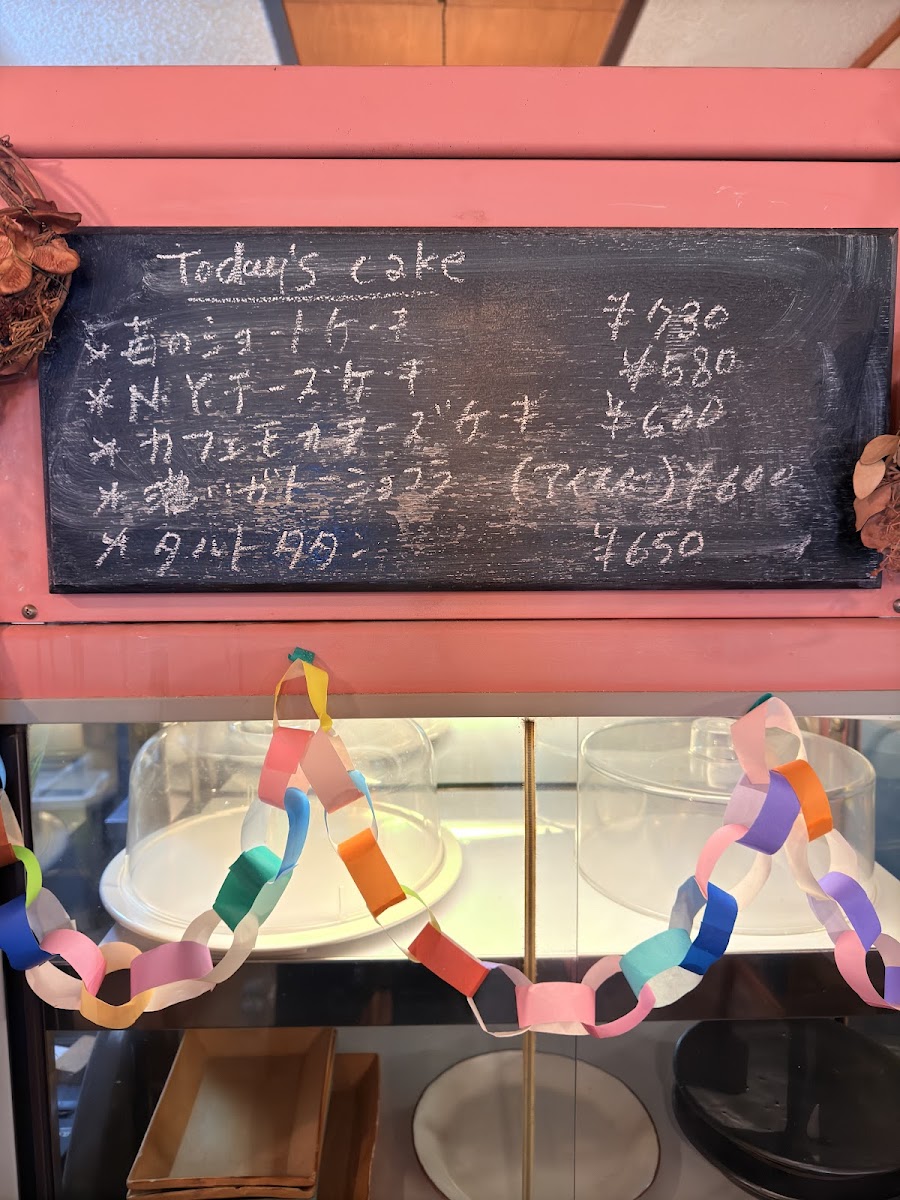 Today's cake
* 苺のショートケーキ ¥730
* N.Y.チーズケーキ ¥580
* カフェモカチーズケーキ ¥600
* 濃いガトーショコラ (アイス付) ¥600
* タルトタタン ¥650